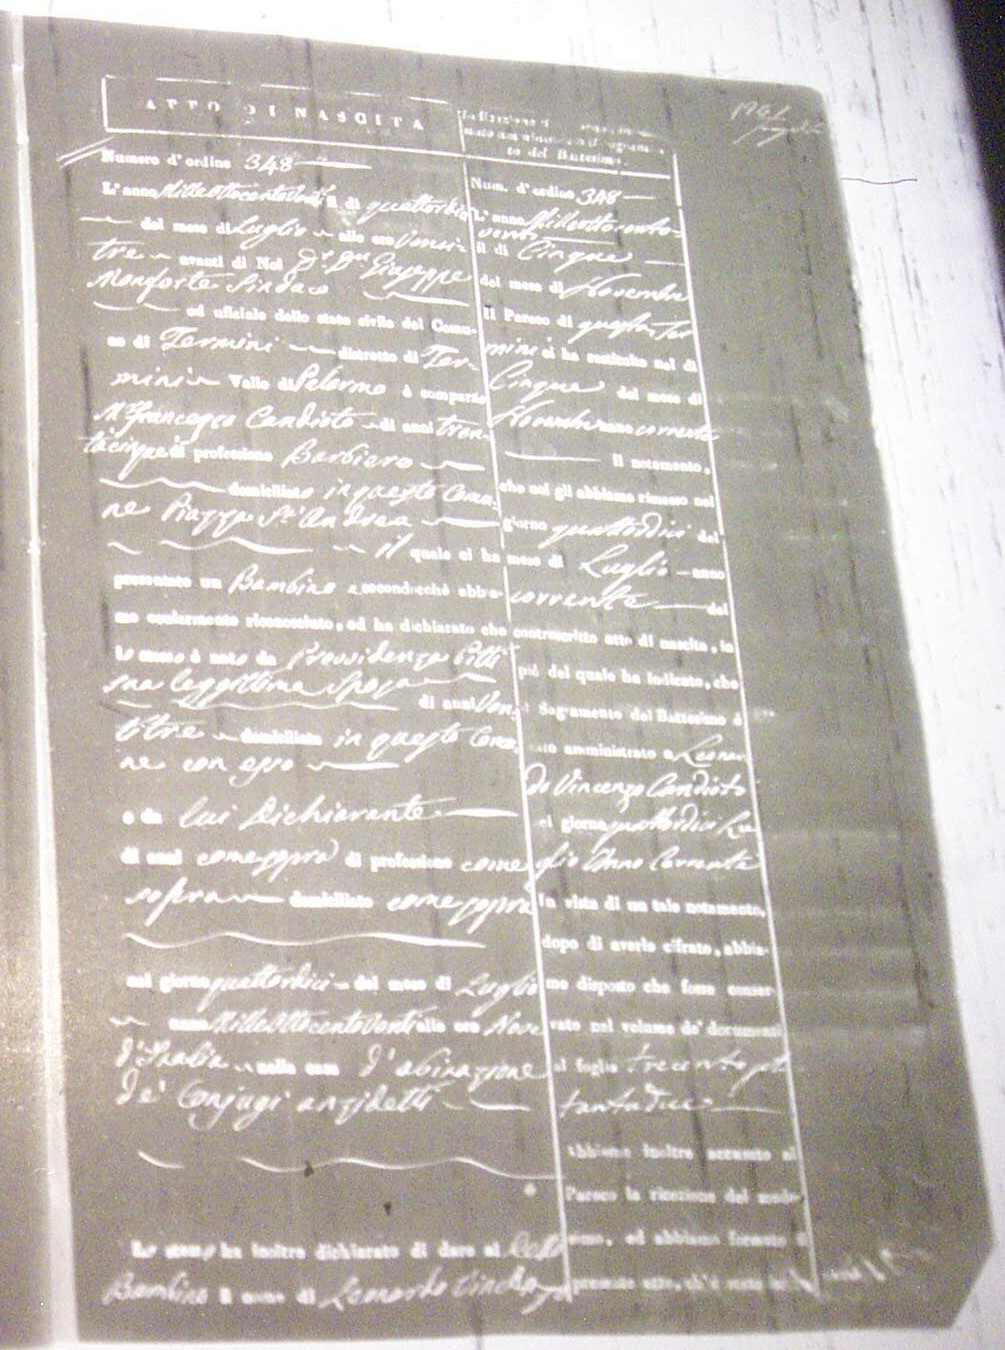 ATTO DI NASCITA
Numero d'ordine 348
L'anno Milleottocentoventi il di quattordici
del mese di Luglio alle ore Venti-
tre avanti di Noi Dr. Dn. Giuseppe
Monforte Sindaco
ed ufficiale dello stato civile del Comu-
ne di Termini distretto di Ter-
mini Valle di Palermo è comparso
Mo Francesco Candioto di anni tren-
tacinque di professione Barbiero
domiciliato in questo Comu-
ne Piazza St. Andrea
il quale ci ha
presentato un Bambino secondocchè abbia-
mo ocularmente riconosciuto, ed ha dichiarato che
lo stesso è nato da Provvidenza
sua leggittima Sposa
di anni Ven-
titre domiciliata in questo Comu-
ne con esso
e da lui Dichiarante
di anni come sopra di professione come
sopra domiciliato come sopra
nel giorno quattordici del mese di Luglio
anno Milleottocentoventi alle ore Nove
d'Italia nella casa d'abitazione
de' Conjugi anzidetti
Lo stesso ha inoltre dichiarato di dare al detto
Bambino il nome di Leonardo
to del Battesimo.
Num. d'ordine 348
L'anno Milleottocento-
venti
il di Cinque
del mese di Novembre
Il Parroco di questa Ter
mini ci ha restituito nel di
Cinque del mese di
Novembre anno corrente
Il notamento,
che noi gli abbiamo rimesso nel
giorno quattordici del
mese di Luglio anno
corrente del
controscritto atto di nascita, in
piè del quale ha indicato, che
il Sagramento del Battesimo è
stato amministrato a Leonar
do Vincenzo Candioto
nel giorno quattordici Lu
glio Anno Corrente
In vista di un tale notamento,
dopo di averlo cifrato, abbia-
mo disposto che fosse conser-
vato nel volume de' documenti
al foglio trecento
Abbiamo inoltre accusato al
Parroco la ricezione del mede-
simo, ed abbiamo formato il
presente atto, ch'è stato